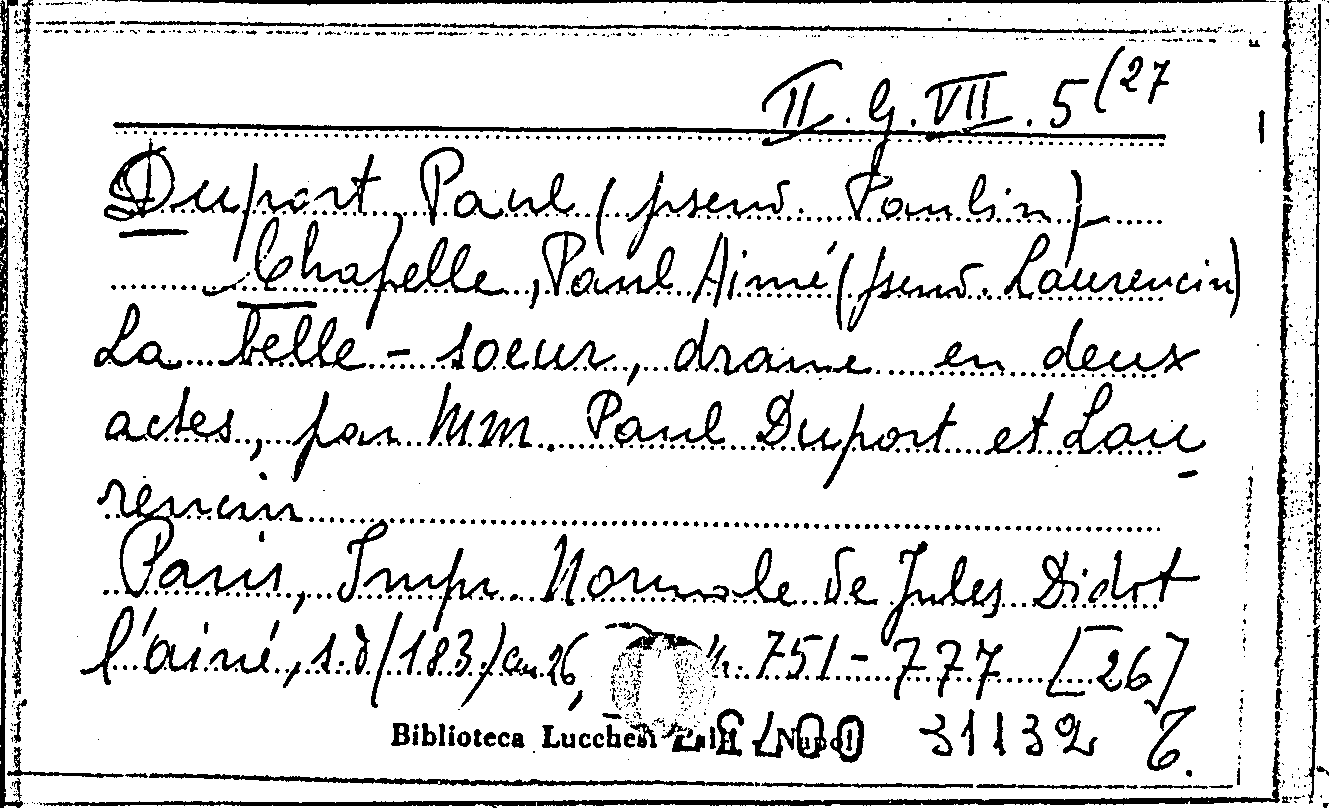 II. G. VII. 5(27
Duport, Paul (pseud. Paulin)
Chapelle, Paul Aimé (pseud. Laurencin)
La belle-soeur, drame en deux
actes, par MM. Paul Duport et Lau-
rencin
Paris, Impr. Normale de Jules Didot
l'ainé, s.d. (183.) cm 26, 751-777 [26]
Biblioteca Lucchesi Palli - Napoli 31132 T.